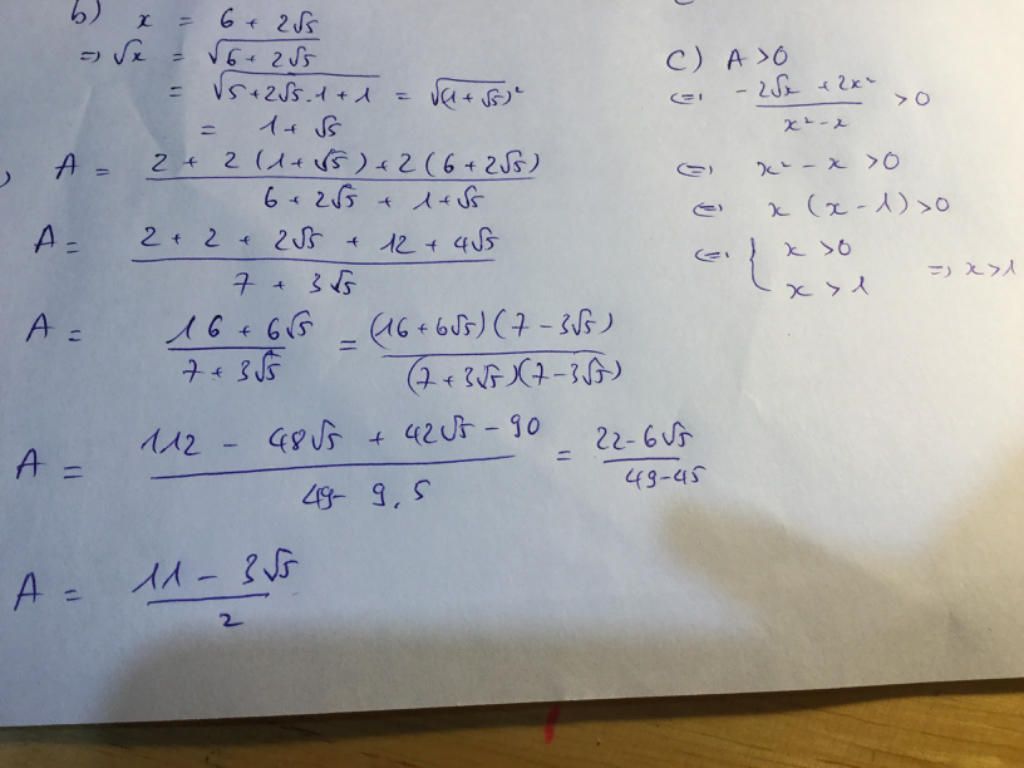 b) x = 6 + 2√5
=> √x = √(6 + 2√5)
= √(5+2√5.1+1) = √(1+√5)²
= 1+√5
A = (2 + 2(1+√5)+2(6+2√5))/(6+2√5 + 1+√5)
A = (2 + 2 + 2√5 + 12 + 4√5)/(7 + 3√5)
A = (16 + 6√5)/(7 + 3√5) = ((16+6√5)(7-3√5))/((7+3√5)(7-3√5))
A = (112 - 48√5 + 42√5 - 90)/(49 - 9.5) = (22-6√5)/(49-45)
A = (11 - 3√5)/2
c) A >0
<=> (-2√x + 2x²)/(x²-x) >0
<=> x² - x >0
<=> x (x-1) >0
<=> { x >0
x > 1 => x >1